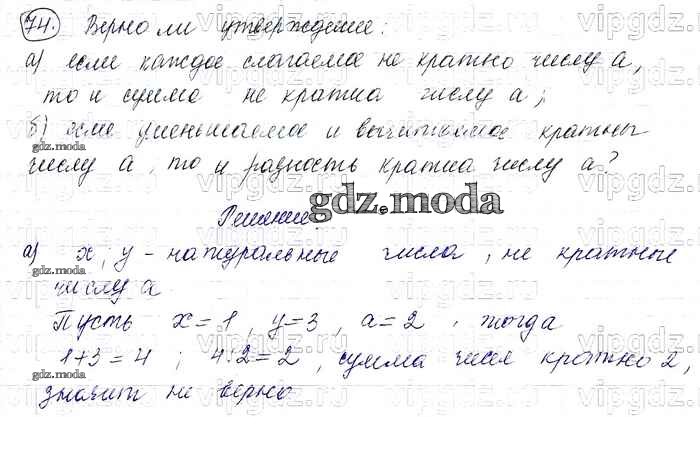 74. Верно ли утверждение:
а) если каждое слагаемое не кратно числу а,
то и сумма не кратна числу а;
б) если уменьшаемое и вычитаемое кратны
числу а, то и разность кратна числу а?
Решение
а) x, y - натуральные числа, не кратные
числу а
Пусть x=1, y=3, a=2, тогда
1+3=4; 4:2=2, сумма чисел кратно 2,
значит не верно
gdz.moda
gdz.moda
gdz.moda
gdz.moda
vipgdz.moda